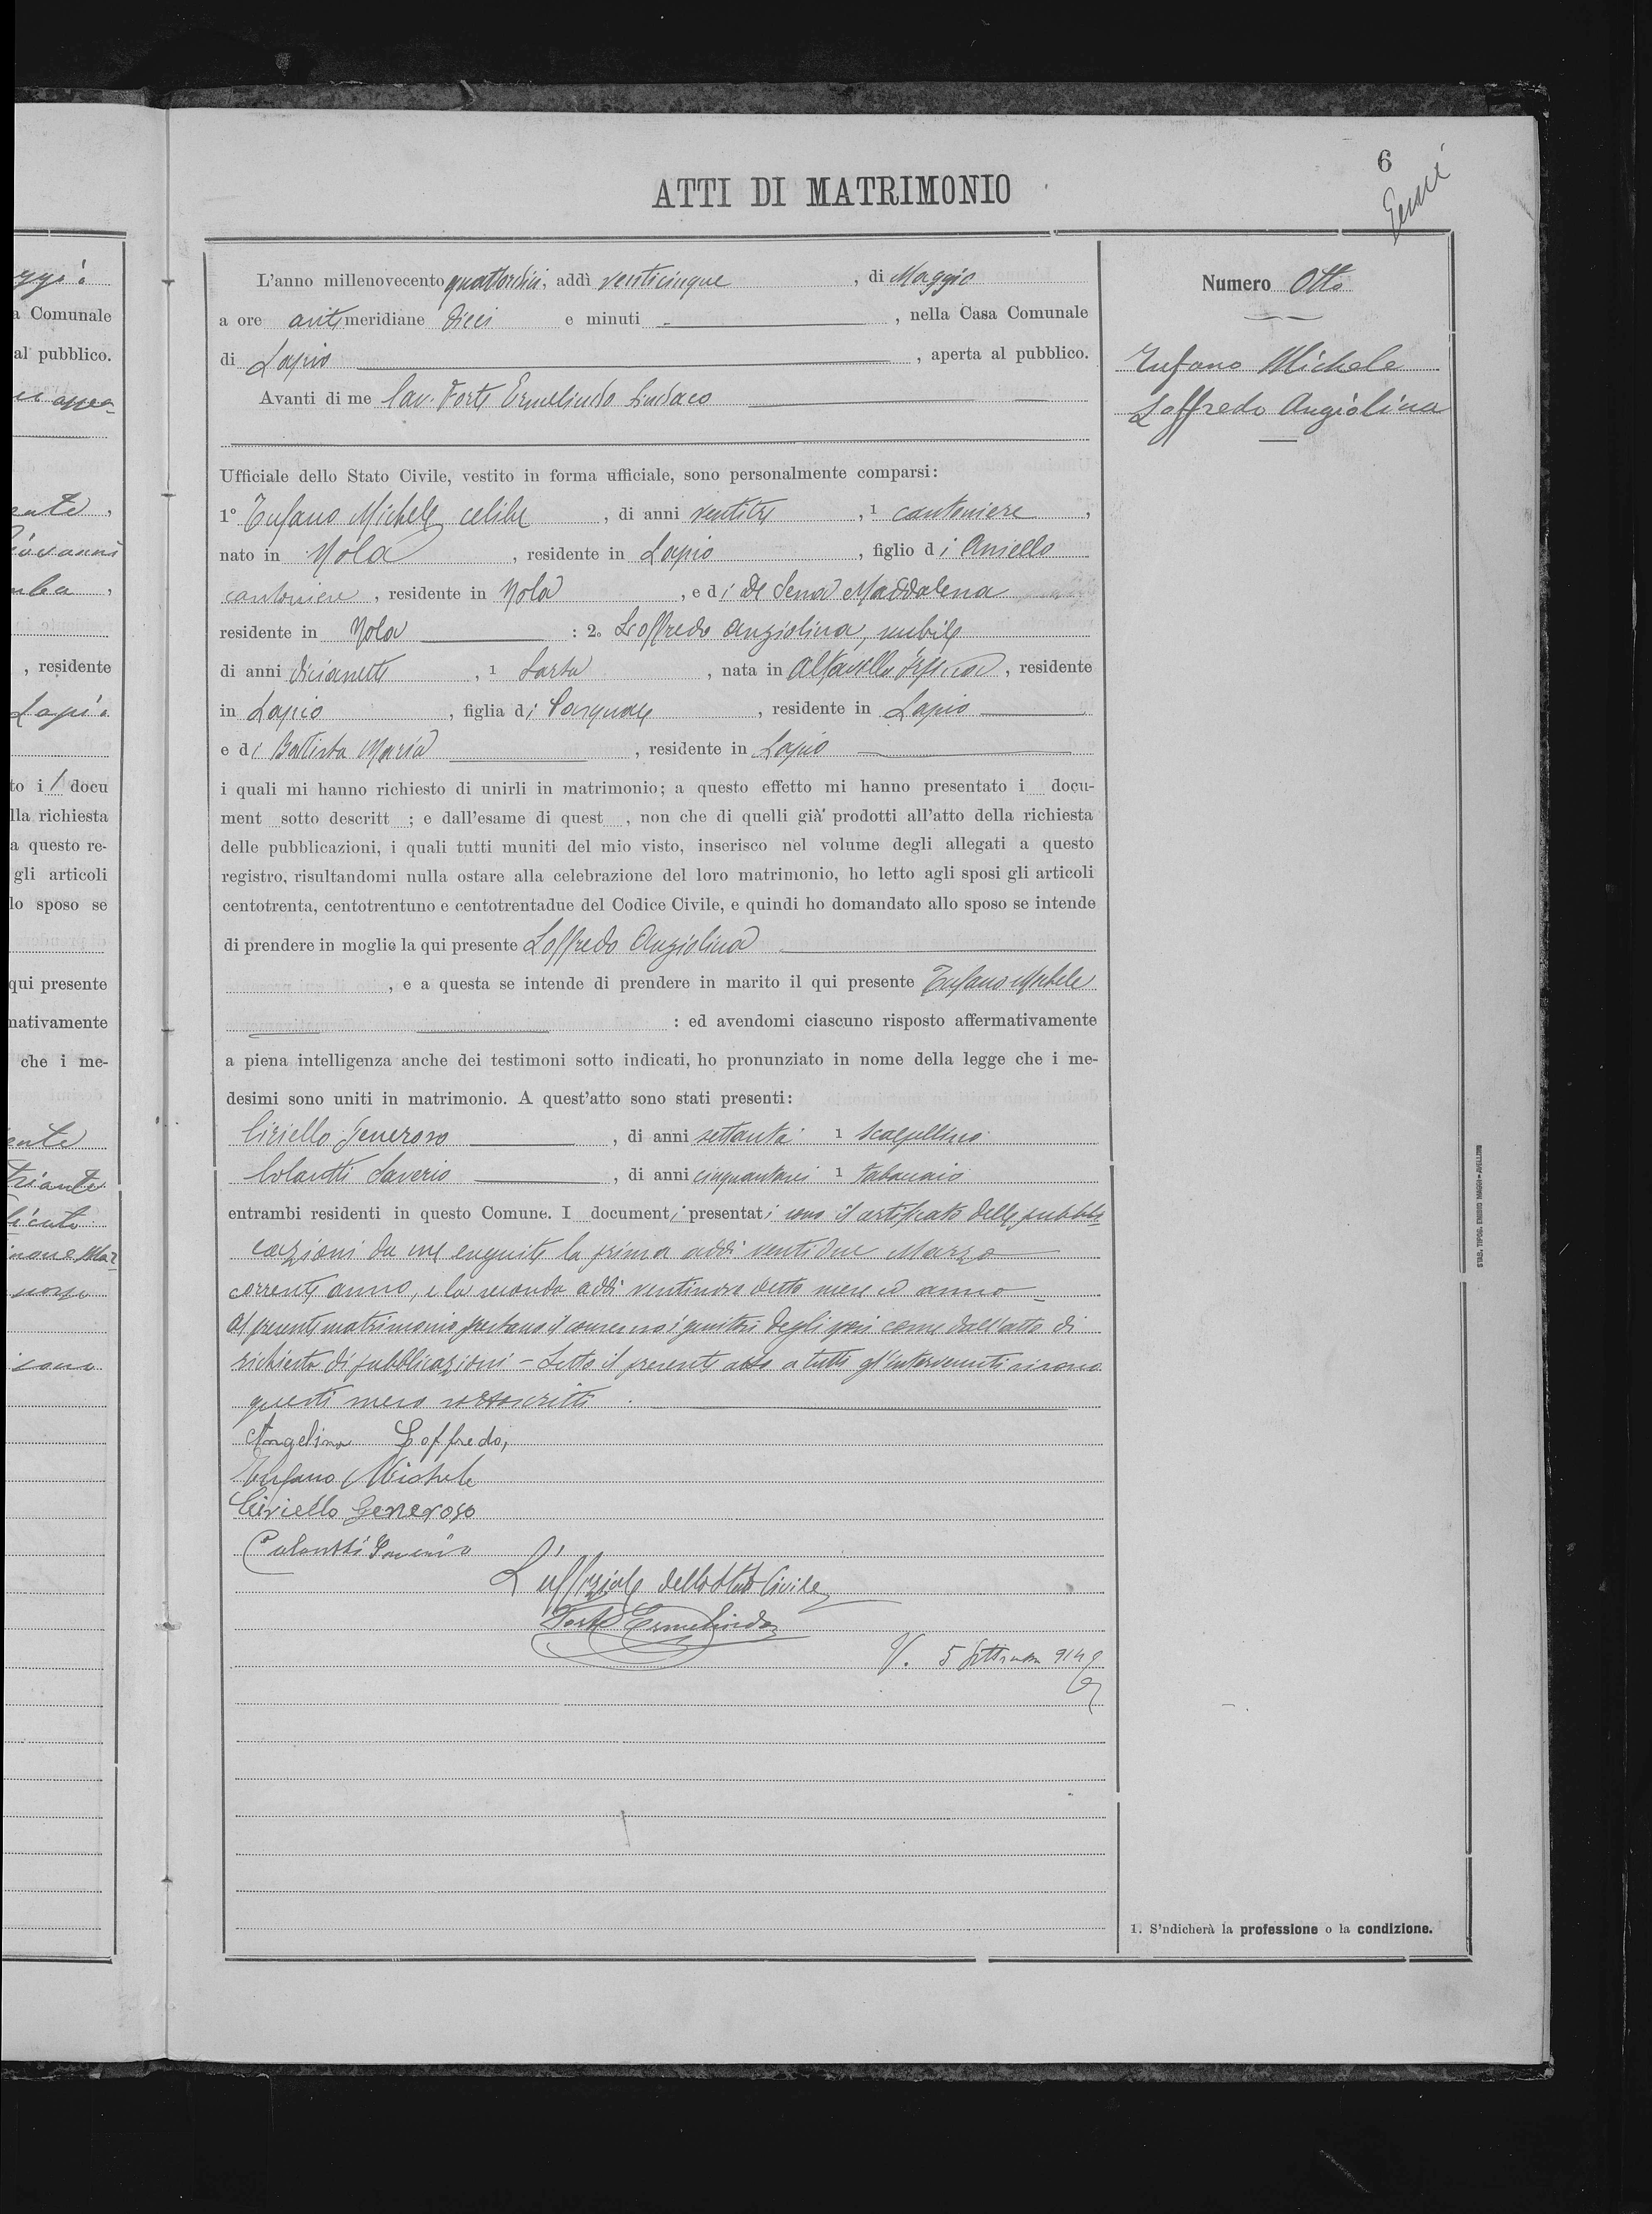 yyi°
a Comunale
al pubblico.
ente,
Giovanni
mba,
, residente
Lapio
to i / docu
lla richiesta
a questo re-
gli articoli
lo sposo se
qui presente
mativamente
che i me-
ente
6
ATTI DI MATRIMONIO
L'anno millenovecento quattordici, addì venticinque, di Maggio
a ore antimeridiane dieci e minuti —, nella Casa Comunale
di Lapio, aperta al pubblico.
Avanti di me Cav. Forte Ermelindo Sindaco
Ufficiale dello Stato Civile, vestito in forma ufficiale, sono personalmente comparsi:
1° Tufano Michele celibe, di anni ventitre, 1 cantoniere,
nato in Nola, residente in Lapio, figlio di Aniello
cantoniere, residente in Nola, e di De Sena Maddalena
residente in Nola : 2. Loffredo Angiolina, nubile
di anni dicianette, 1 Sarta, nata in Altavilla Irpina, residente
in Lapio, figlia di Pasquale, residente in Lapio
e di Battista Maria, residente in Lapio
i quali mi hanno richiesto di unirli in matrimonio; a questo effetto mi hanno presentato i docu-
ment sotto descritt ; e dall'esame di quest , non che di quelli già prodotti all'atto della richiesta
delle pubblicazioni, i quali tutti muniti del mio visto, inserisco nel volume degli allegati a questo
registro, risultandomi nulla ostare alla celebrazione del loro matrimonio, ho letto agli sposi gli articoli
centotrenta, centotrentuno e centotrentadue del Codice Civile, e quindi ho domandato allo sposo se intende
di prendere in moglie la qui presente Loffredo Angiolina
, e a questa se intende di prendere in marito il qui presente Tufano Michele
: ed avendomi ciascuno risposto affermativamente
a piena intelligenza anche dei testimoni sotto indicati, ho pronunziato in nome della legge che i me-
desimi sono uniti in matrimonio. A quest'atto sono stati presenti:
Ciriello Generoso, di anni settanta 1 Scalpellino
Colantti Saverio, di anni cinquantasei 1 tabaccaio
entrambi residenti in questo Comune. I documenti presentati sono il certificato delle pubbli
cazioni da me eseguite la prima addì ventidue Marzo
corrente anno, e la seconda addì ventinove detto mese ed anno
Al presente matrimonio prestano il consenso i genitori degli sposi come dall'atto di
richiesta di pubblicazioni - Letto il presente atto a tutti gl'intervenuti si sono
questi meco sottoscritti.
Angelina Loffredo,
Tufano Michele
Ciriello Generoso
Colantti Saverio
L'uffiziale dello Stato Civile
Forte Ermelindo
V. 5 Settembre 914
Numero Otto
Tufano Michele
Loffredo Angiolina
1. S'ndicherà la professione o la condizione.
STAB. TIPOG. EMIDIO MAGGI - AVELLINO